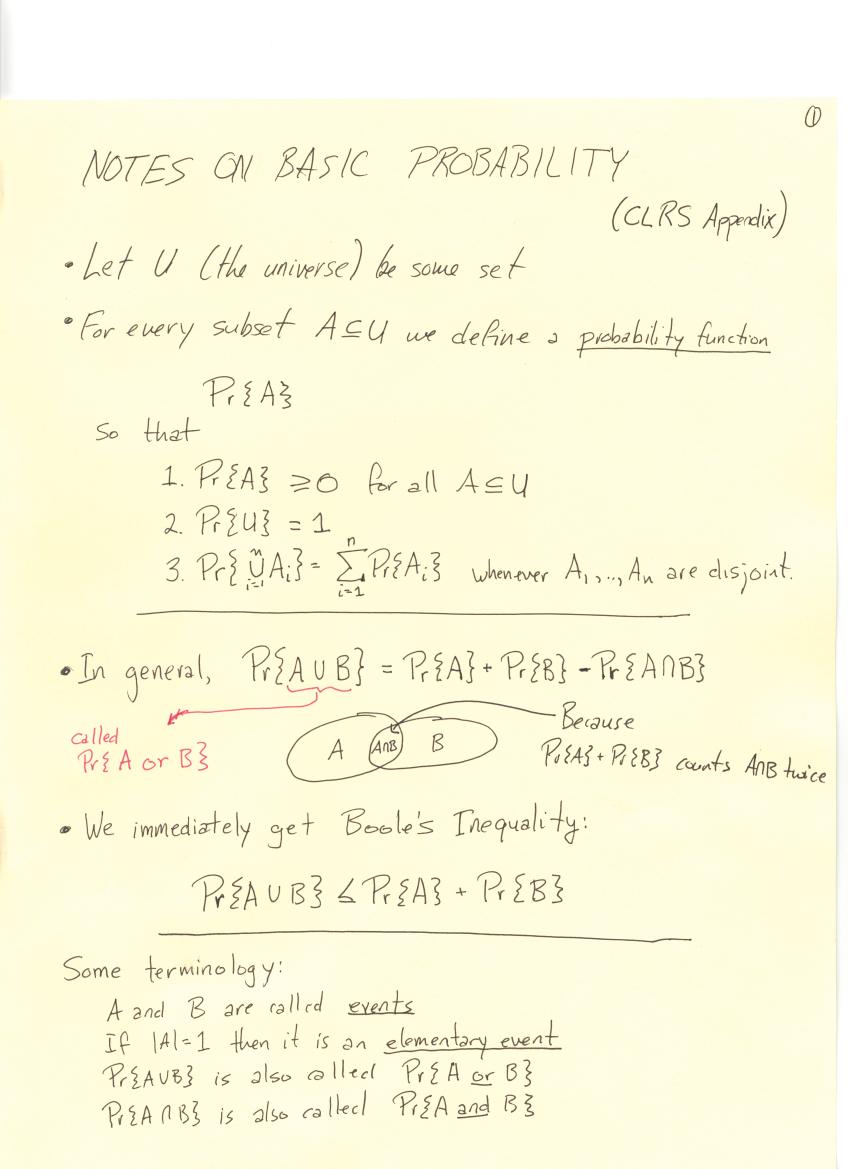 ①
NOTES ON BASIC PROBABILITY
(CLRS Appendix)
• Let U (the universe) be some set
• For every subset A ⊆ U we define a probability function
Pr{A}
So that
1. Pr{A} ≥ 0 for all A ⊆ U
2. Pr{U} = 1
3. Pr{⋃ᵢ₌₁ⁿ Aᵢ} = ∑ᵢ₌₁ⁿ Pr{Aᵢ} whenever A₁,..,Aₙ are disjoint.
• In general, Pr{A ∪ B} = Pr{A} + Pr{B} - Pr{A∩B}
called
Pr{A or B}
A A∩B B
Because
Pr{A} + Pr{B} counts A∩B twice
• We immediately get Boole's Inequality:
Pr{A ∪ B} ≤ Pr{A} + Pr{B}
Some terminology:
A and B are called events
If |A|=1 then it is an elementary event
Pr{A∪B} is also called Pr{A or B}
Pr{A∩B} is also called Pr{A and B}